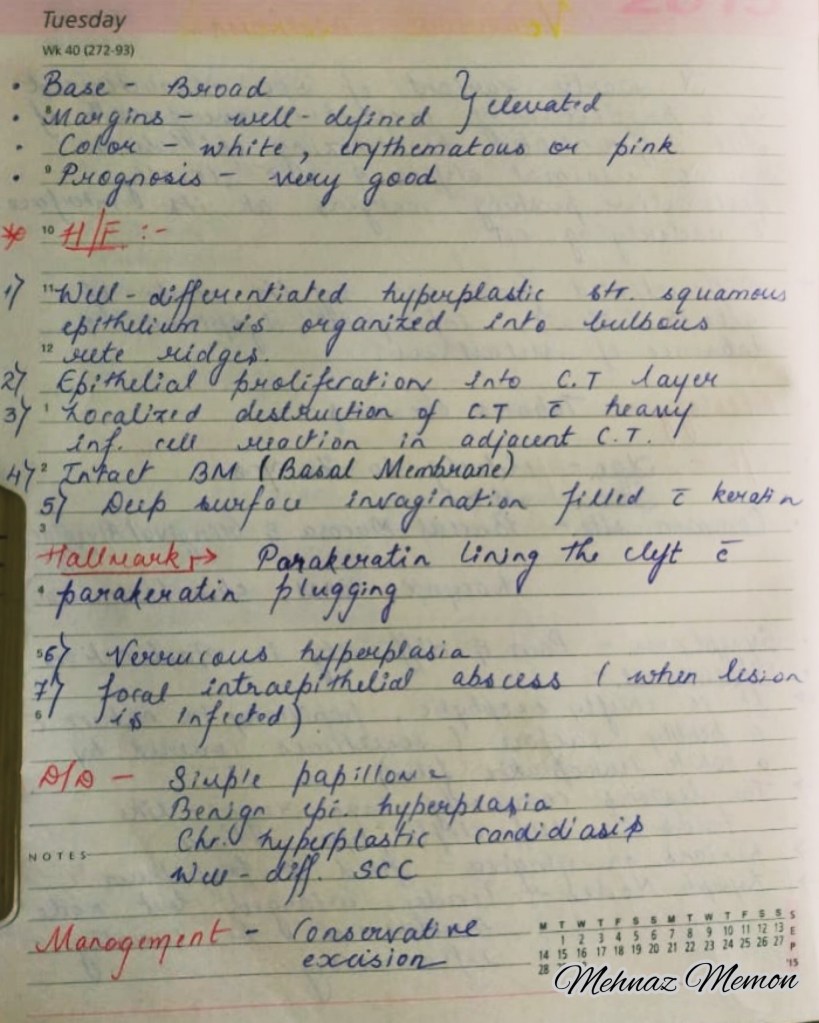 Tuesday
Wk 40 (272-93)
• Base - Broad } elevated
• Margins - well-defined
• Color - white, erythematous or pink
• 9 Prognosis - very good
* 10 H/F :-
1) 11 Well-differentiated hyperplastic str. squamous
epithelium is organized into bulbous
12 rete ridges.
2) Epithelial proliferation into C.T layer
3) 1 Localized destruction of C.T c̄ heavy
inf. cell reaction in adjacent C.T.
4) 2 Intact BM (Basal Membrane)
5) Deep surface invagination filled c̄ keratin
3
Hallmark → Parakeratin lining the cleft c̄
4 parakeratin plugging
5 6) Verrucous hyperplasia
7) focal intraepithelial abscess (when lesion
6 is Infected)
D/D - Simple papilloma
Benign epi. hyperplasia
Chr. hyperplastic candidiasis
NOTES
Well-diff. SCC
Management - Conservative
excision
M T W T F S S M T W T F S S
1 2 3 4 5 6 7 8 9 10 11 12 13
14 15 16 17 18 19 20 21 22 23 24 25 26 27
28
SEP
'15
Mehnaz Memon